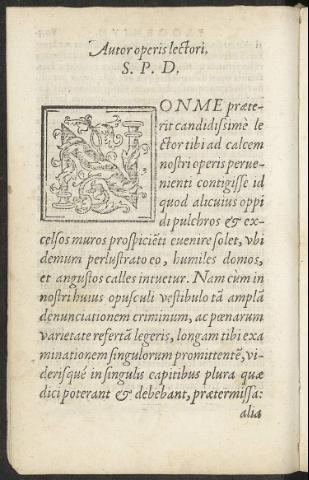 Autor operis lectori.
S. P. D.
NON ME præte-
rit candidissimè le
ctor tibi ad calcem
nostri operis perue-
nienti contigisse id
quod alicuius oppi
di pulchros & ex-
celsos muros prospiciẽti euenire solet, vbi
demum perlustrato eo, humiles domos,
et angustos calles intuetur. Nam cùm in
nostri huius opusculi vestibulo tã amplã
denunciationem criminum, ac pœnarum
varietate refertã legeris, longam tibi exa
minationem singulorum promittentẽ, vi-
derisqué in singulis capitibus plura quæ
dici poterant & debebant, prætermissa:
alia